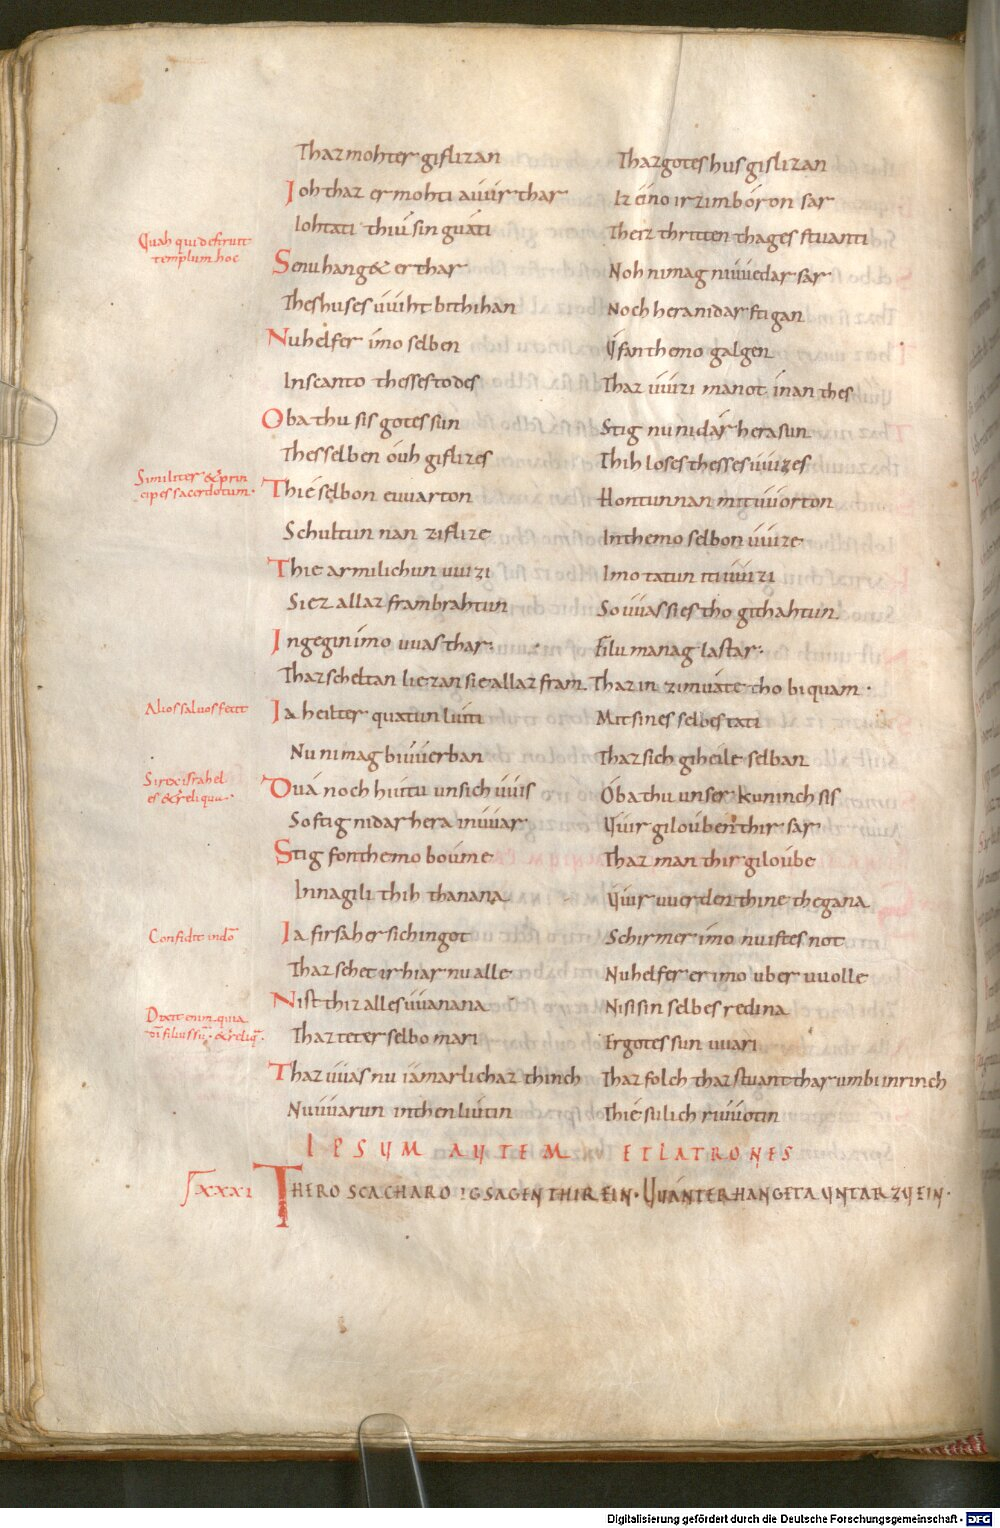 Thaz mohter giflizan Thaz gotes hus gislizan
Ioh thaz er mohti auur thar Iz eino irzimboron sar
Ioh tati thiu sin guati Theiz thritten thages stuanti
Quah qui destruit
templum hoc
Senu hang& er thar Noh ni mag niuuedar sar
Thes huses uuiht bithihan Noch hera nidar stigan
Nu helfer imo selben Vfan themo galgen
In scanto thesses todes Thaz uuizi manot inan thes
Oba thu sis gotes sun Stig nu nidar herasun
Thes selben ouh giflizes Thih loses thesses uuizes
Similiter & prin
cipes sacerdotum.
Thie selbon euuarton Hontun nan mit uuorton
Schultun nan zi flize In themo selbon uuize
Thie armilichun uuizi Imo tatun ituuizi
Siez allaz frambrahtun So uuas sies tho githahtun
Ingegin imo uuas thar Filu manag lastar
Thaz scheltan liezan sie allaz fram Thaz in zi muate tho biquam.
Alios saluos fecit
Ia heilter quatun liuti Mit sines selbes tati
Nu ni mag biuuerban Thaz sich giheile selban
Si rex israhel
es & reliqua.
Duá noch hiutu unsich uuis Óba thu unser kuninch sis
So stig nidar hera in uuar Vuir gilouben thir sar
Stig fon themo boume Thaz man thir giloube
In nagili thih thanana Vuir uuerden thine thegana
Confidit in dō
Ia firsah er sich in got Schirmer imo nu ist es not
Thaz sehet ir hiar nu alle Nu helfer er imo uber uuolle
Nist thiz alles uuanana Nisi sin selbes redina
Dixit enim quia
dī filius sū. & reliq.
Thaz teter selbo mari Er gotes sun uuari
Thaz uuas nu iamarlichaz thinch Thaz folch thaz stuant thar umbi in rinch
Nu uuarun in then liutin Thie sulich ruuuotin
IPSUM AUTEM ET LATRONES
XXXI THERO SCACHARO IG SAGEN THIR EIN. VUANTER HANGETA UNTAR ZUEIN.
Digitalisierung gefördert durch die Deutsche Forschungsgemeinschaft - DFG